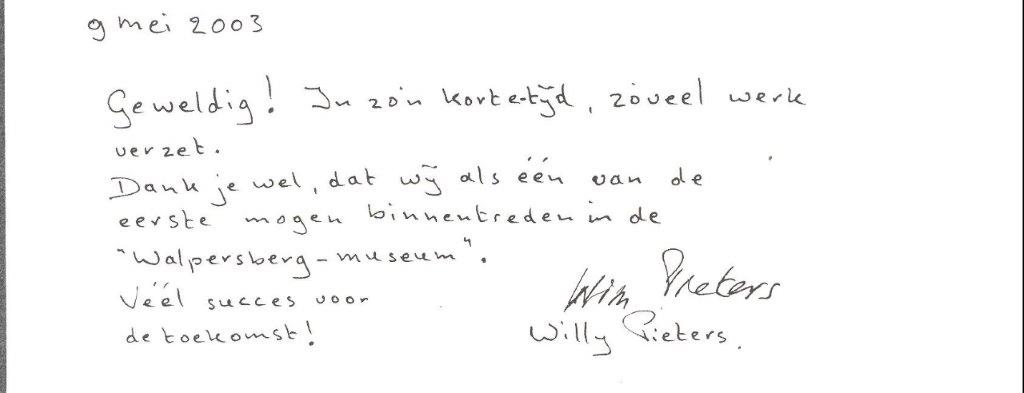 9 mei 2003
Geweldig! In zo'n korte tijd, zóveel werk
verzet.
Dank je wel, dat wij als één van de
eerste mogen binnentreden in de
"Walpersberg-museum".
Véél succes voor
de toekomst!
Wim Pieters
Willy Pieters.